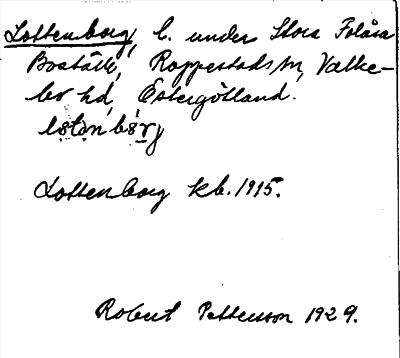 Lottenborg, l. under Stora Folåsa
Bostäde, Rappestads sn, Valke-
bo hd, Östergötland.
Lottenborg kb. 1915.
Robert Pettersson 1929.